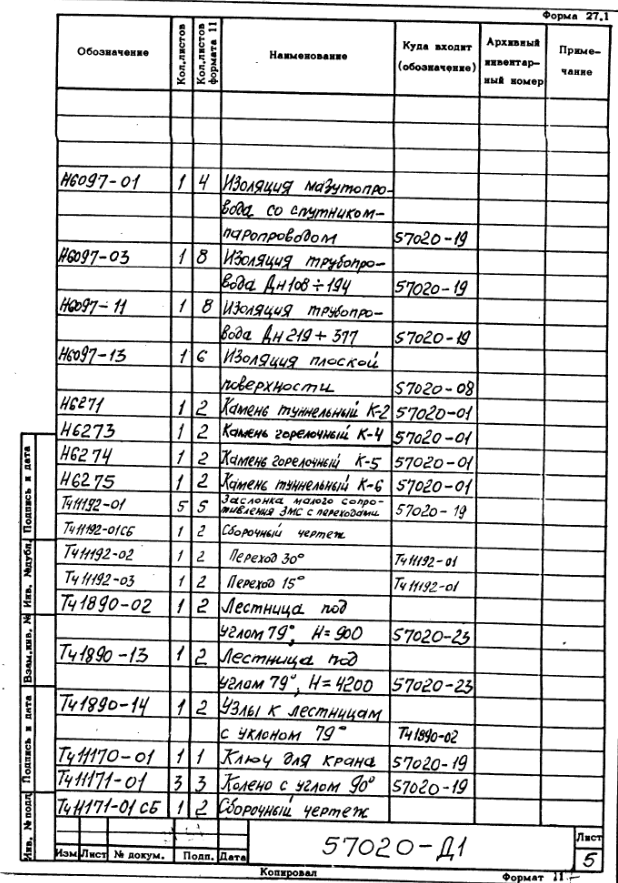 Форма 27.1
Обозначение Кол.листов Кол.листов формата 11 Наименование Куда входит (обозначение) Архивный инвентарный номер Примечание
Н6097-01 1 4 Изоляция мазутопро-
вода со спутником-
паропроводом 57020-19
Н6097-03 1 8 Изоляция трубопро-
вода Дн108÷194 57020-19
Н6097-11 1 8 Изоляция трубопро-
вода Дн219÷377 57020-19
Н6097-13 1 6 Изоляция плоской
поверхности 57020-08
Н6271 1 2 Камень туннельный К-2 57020-01
Н6273 1 2 Камень горелочный К-4 57020-01
Н6274 1 2 Камень горелочный К-5 57020-01
Н6275 1 2 Камень туннельный К-6 57020-01
Тч11192-01 5 5 Заслонка малого сопро-
тивления ЗМС с переходами 57020-19
Тч11192-01СБ 1 2 Сборочный чертеж
Тч11192-02 1 2 Переход 30° Тч11192-01
Тч11192-03 1 2 Переход 15° Тч11192-01
Тч1890-02 1 2 Лестница под
углом 79°, Н=900 57020-23
Тч1890-13 1 2 Лестница под
углом 79°, Н=4200 57020-23
Тч1890-14 1 2 Узлы к лестницам
с уклоном 79° Тч1890-02
Тч11170-01 1 1 Ключ для крана 57020-19
Тч11171-01 3 3 Колено с углом 90° 57020-19
Тч11171-01 СБ 1 2 Сборочный чертеж
Подпись и дата
Инв. №дубл.
Взам.инв. №
Подпись и дата
Инв. № подл.
Изм Лист № докум. Подп. Дата
57020-Д1
Лист
5
Копировал Формат 11